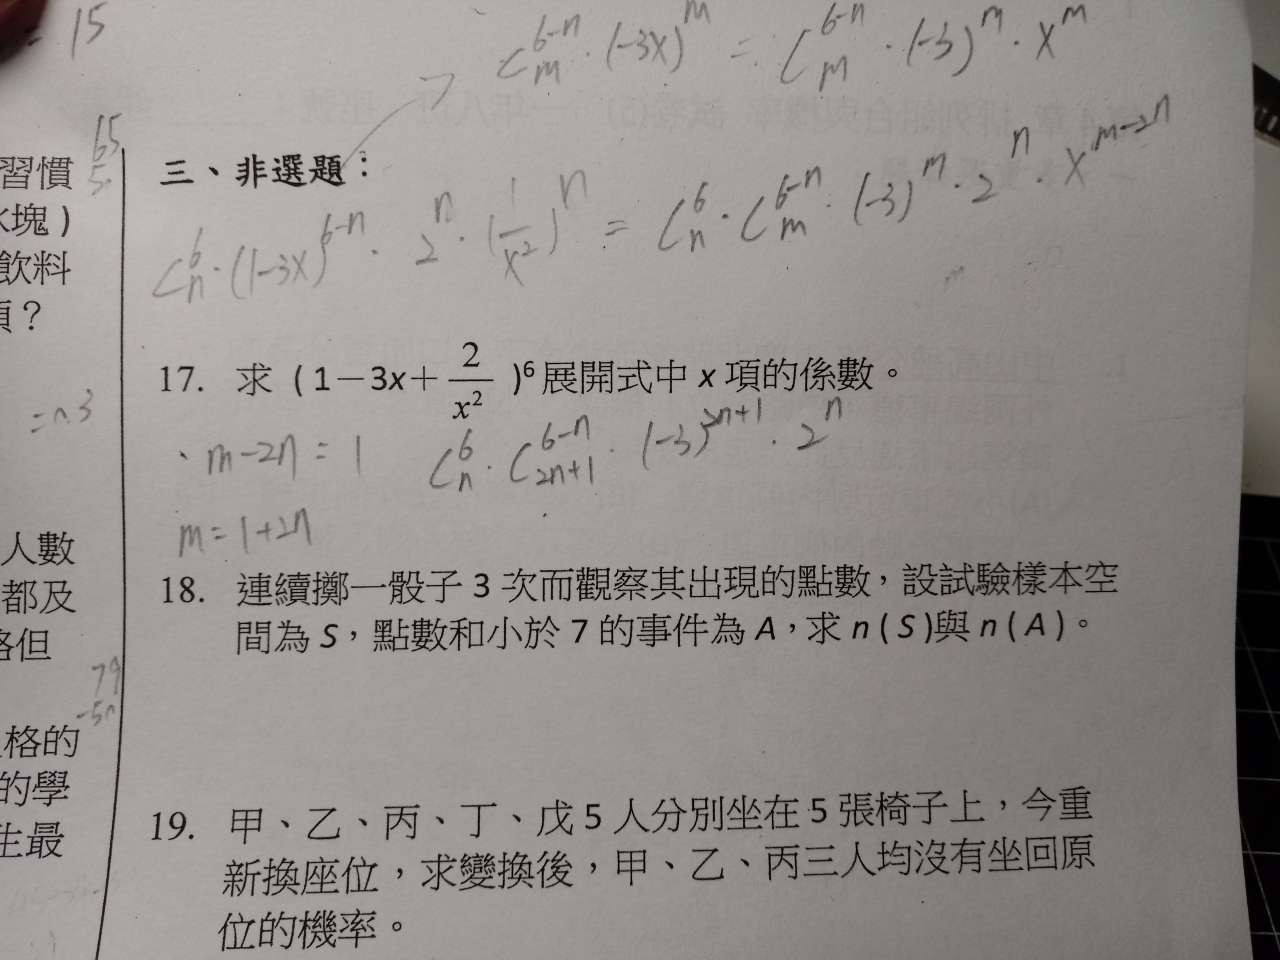 = 15
C_m^{6-n} · (-3x)^m = C_m^{6-n} · (-3)^m · x^m
65
習慣
三、非選題：
水塊)
C_n^6 · (1-3x)^{6-n} · 2^n · (1/x^2)^n = C_n^6 · C_m^{6-n} · (-3)^m · 2^n · x^{m-2n}
飲料
？
17. 求 (1－3x＋2/x²)⁶展開式中 x 項的係數。
m-2n = 1 C_n^6 · C_{2n+1}^{6-n} · (-3)^{2n+1} · 2^n
m = 1+2n
人數
18. 連續擲一骰子 3 次而觀察其出現的點數，設試驗樣本空
都及
間為 S，點數和小於 7 的事件為 A，求 n ( S )與 n ( A )。
但
79
格的
的學
19. 甲、乙、丙、丁、戊 5 人分別坐在 5 張椅子上，今重
生最
新換座位，求變換後，甲、乙、丙三人均沒有坐回原
位的機率。